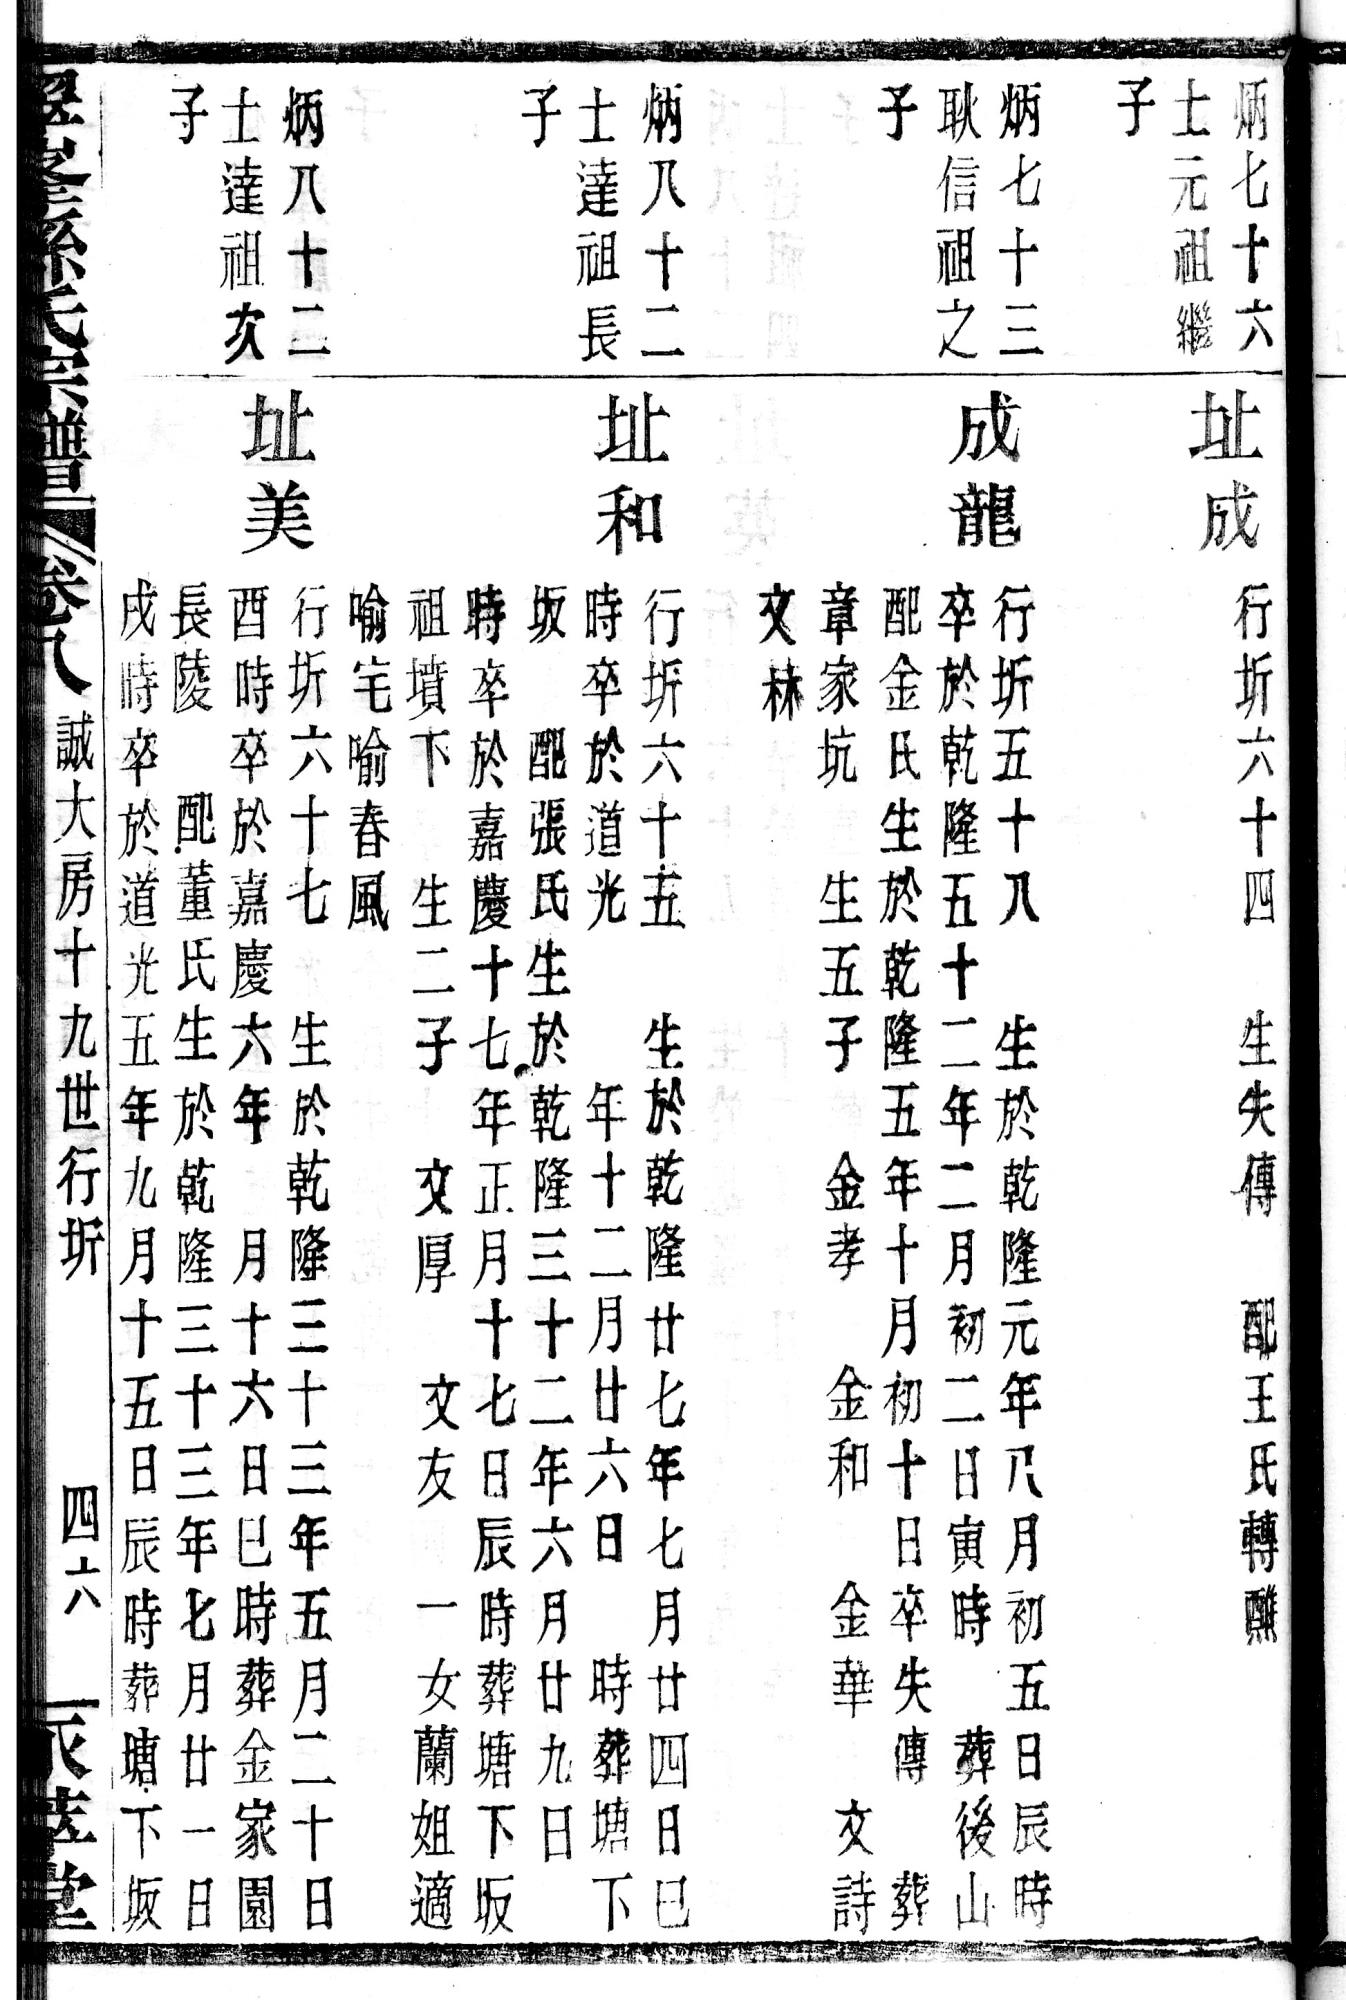 炳七十六
士元祖繼
子
址成
行圻六十四　生失傳　配王氏轉醮
炳七十三
耿信祖之
子
成龍
行圻五十八　生於乾隆元年八月初五日辰時
卒於乾隆五十二年二月初二日寅時　葬後山
配金氏生於乾隆五年十月初十日卒失傳　葬
章家坑　生五子　金孝　金和　金華　文詩
文林
炳八十二
士達祖長
子
址和
行圻六十五　生於乾隆廿七年七月廿四日巳
時卒於道光　　年十二月廿六日　時葬塘下
坂　配張氏生於乾隆三十二年六月廿九日
時卒於嘉慶十七年正月十七日辰時葬塘下坂
祖墳下　生二子　文厚　文友　一女蘭姐適
喻宅喻春風
炳八十二
士達祖次
子
址美
行圻六十七　生於乾隆三十三年五月二十日
酉時卒於嘉慶六年　月十六日巳時葬金家園
長陵　配董氏生於乾隆三十三年七月廿一日
戌時卒於道光五年九月十五日辰時葬塘下坂
翠峯孫氏宗譜　卷八　誠大房十九世行圻　四六　堂